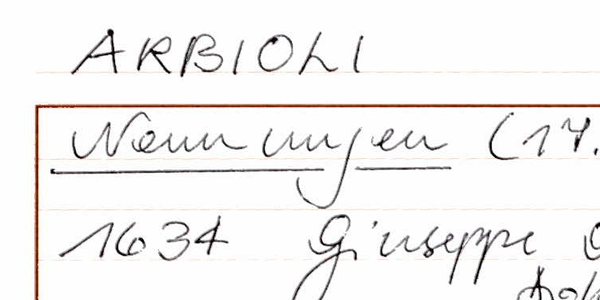 ARBIOLI
Nennungen (17.
1634 Giuseppe